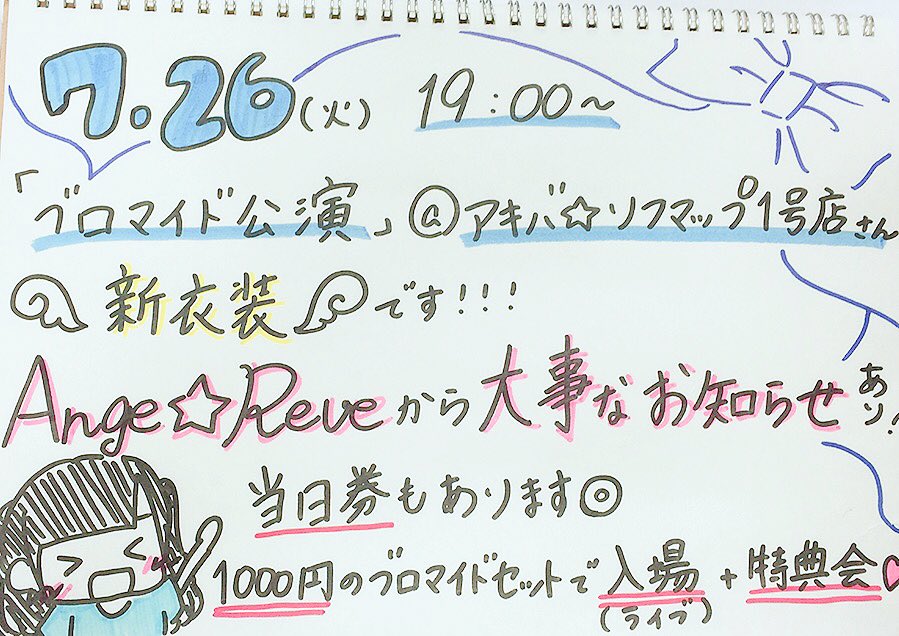 7.26(火) 19:00~
「ブロマイド公演」@アキバ☆ソフマップ1号店さん
新衣装です!!!
Ange☆Reveから大事なお知らせあり!
当日券もあります◎
1000円のブロマイドセットで入場+特典会♡
(ライブ)